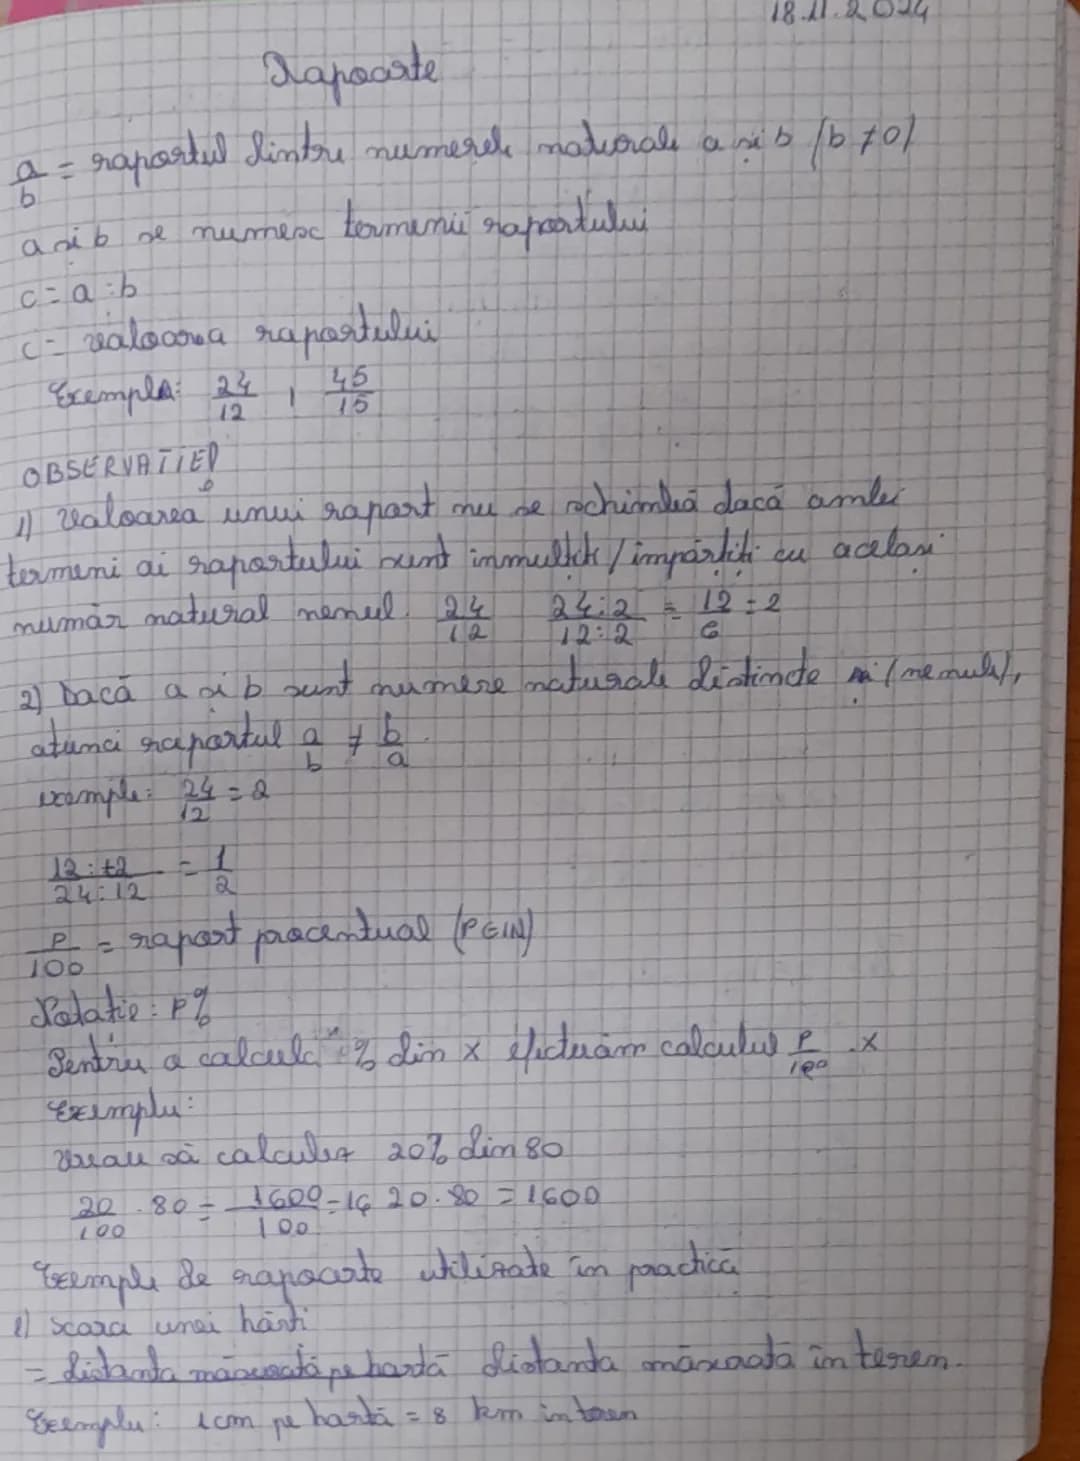 18.11.2024
Rapoarte
a/b = raportul dintre numerele naturale a și b (b≠0)
a și b se numesc termenii raportului
c = a : b
c = valoarea raportului
Exemple: 24/12 , 45/15
OBSERVAȚIE!
1) Valoarea unui raport nu se schimbă dacă ambii
termeni ai raportului sunt înmulțiți/împărțiți cu același
număr natural nenul. 24/12 24:2/12:2 = 12/6 = 2
2) Dacă a și b sunt numere naturale distincte (nenule),
atunci raportul a/b ≠ b/a.
exemple: 24/12 = 2
12:12/24:12 = 1/2
P/100 = raport procentual (P∈ℕ)
Notație: P%
Pentru a calcula % din x efectuăm calculul P/100 . x
Exemplu:
Vreau să calculez 20% din 80
20/100 . 80 = 1600/100 = 16 20 . 80 = 1600
Exemple de rapoarte utilizate în practică
1) scara unei hărți
= distanța măsurată pe hartă distanța măsurată în teren.
Exemplu: 1 cm pe hartă = 8 km in teren